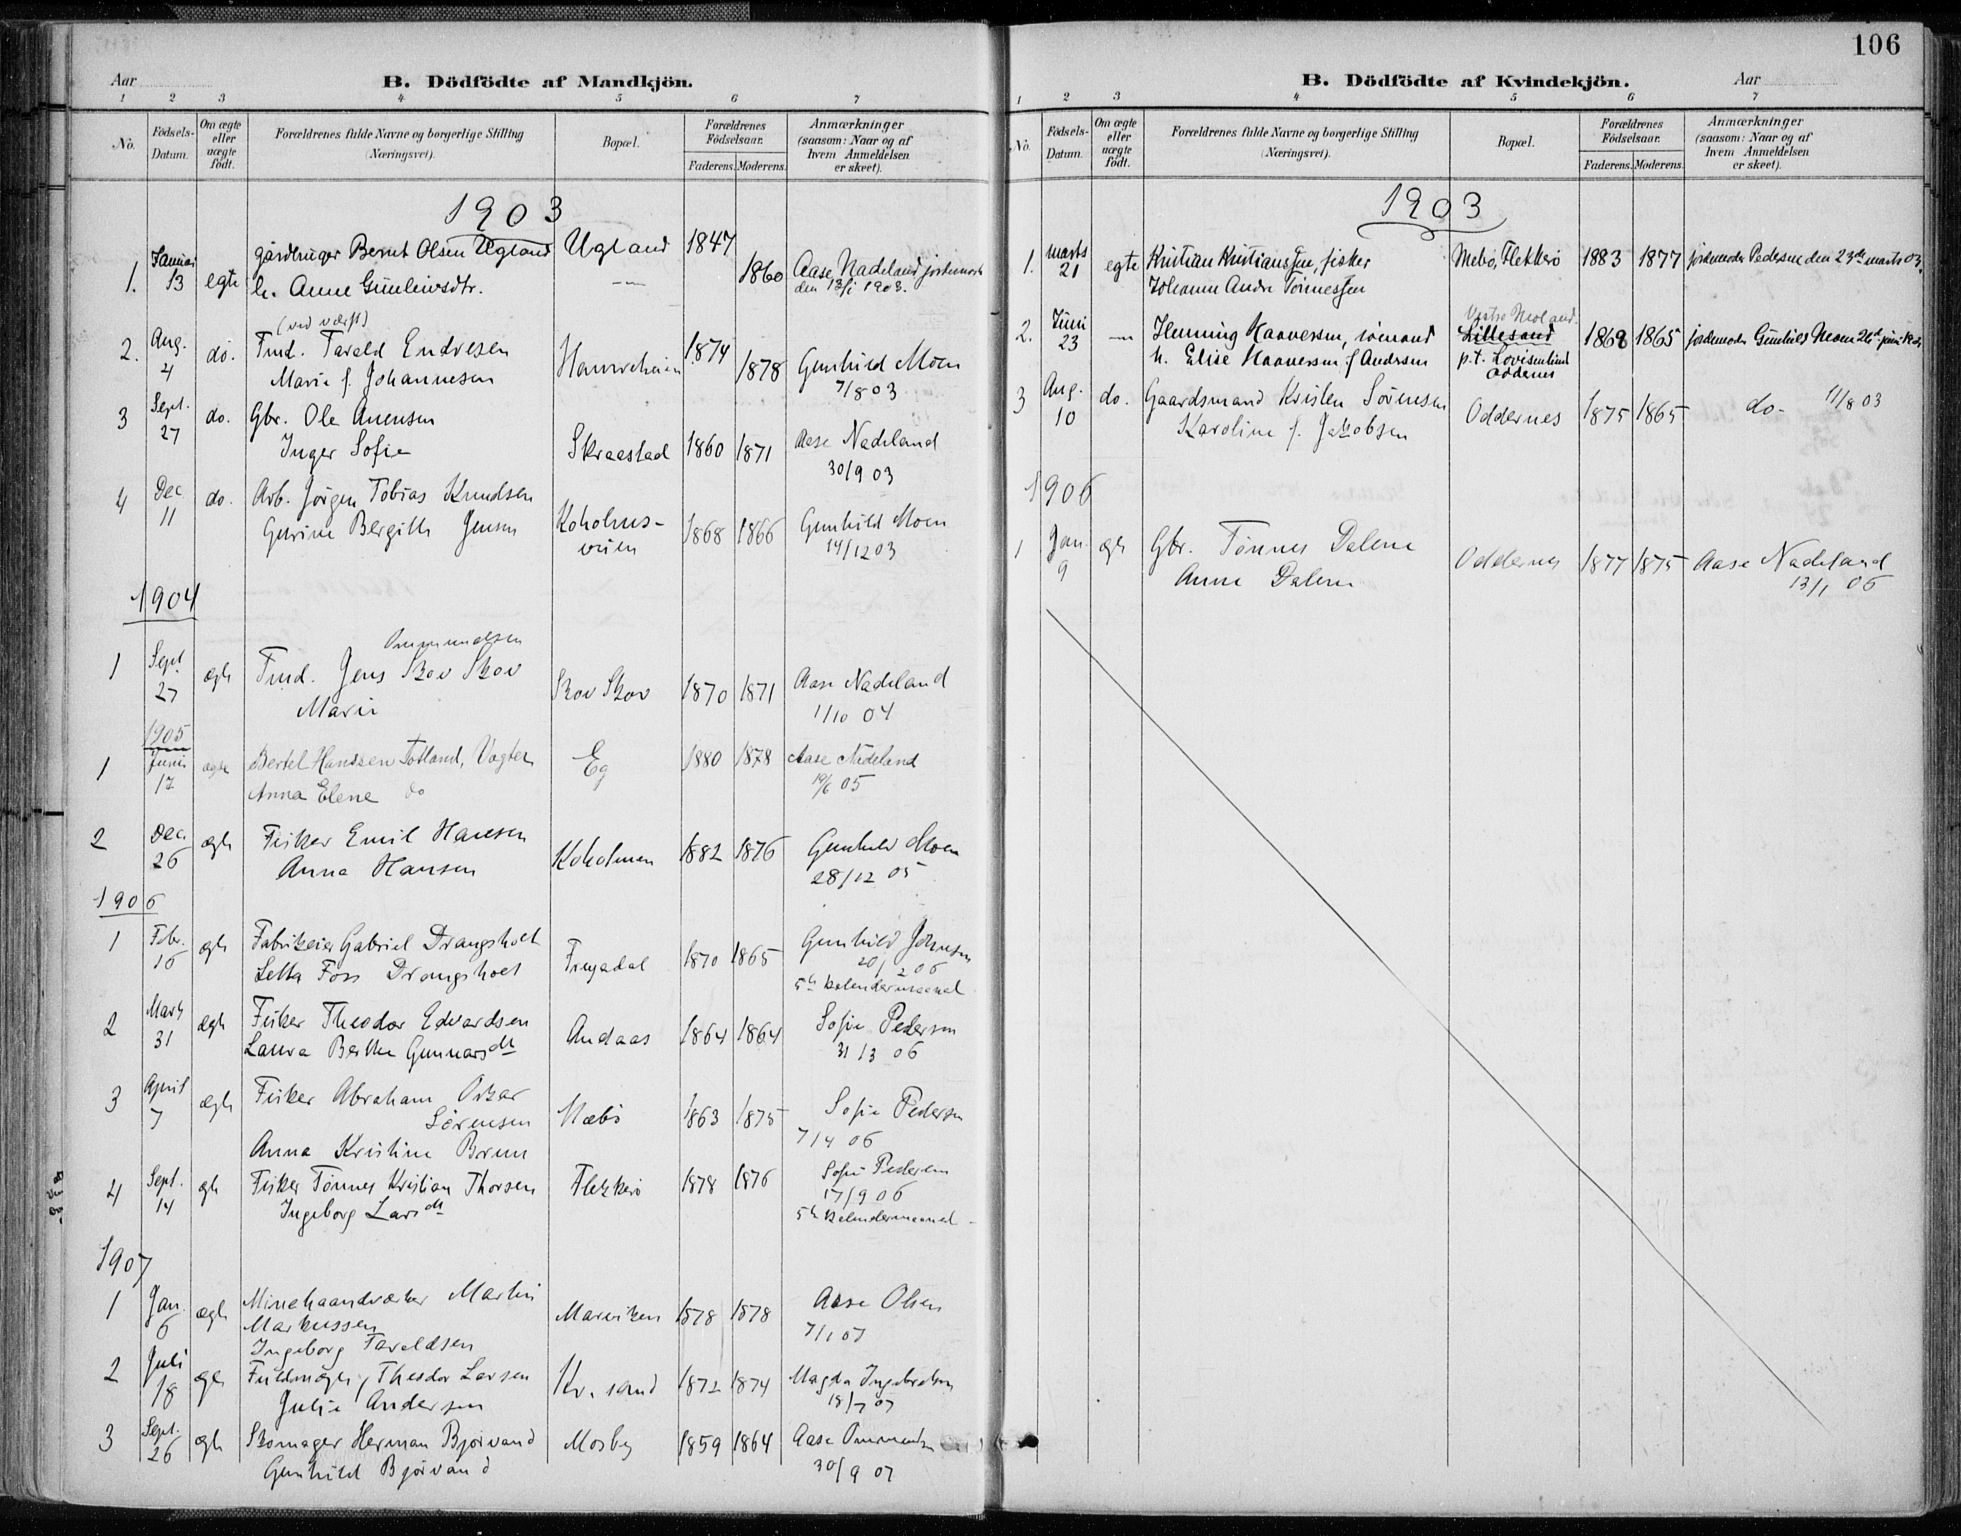 Aar
B. Dödfödte af Mandkjön.
1 2 3 4 5 6 7
No.
Födsels-Datum.
Om ægte eller uægte födt.
Forældrenes fulde Navne og borgerlige Stilling (Næringsvei).
Bopæl.
Forældrenes Födselsaar.
Faderens. Moderens.
Anmærkninger (saasom: Naar og af hvem Anmeldelsen er skeet).
1903
1. Januar 13 egte gårdbruger Bernt Olsen Ugland Ugland 1847
h. Anne Gunleivsdtr. 1860 Aase Nadeland jordemoder
den 13/1 1903.
(ved værft)
2. Aug. 4 do. Tmd. Tarald Endresen 1874
Marie f. Johannesen 1878 Gunhild Moen
7/8 03
3 Sept. 27 do. Gbr. Ole Anensen
Inger Sofie Skraastad 1860 1871 Aase Nadeland
30/9 03
4 Dec 11 do. Arb. Jörgen Tobias Knudsen
Gurine Bergitte Jensen Koholms-veien 1868 1866 Gunhild Moen
14/12 03
1904
Ommundsen
1 Sept 27 ægte Tmd. Jens Skov Skov
Marie Skov Skov 1870 1871 Aase Nadeland
1/10 04
1905
1 Juni 17 ægte Bertel Hanssen Totland, Vogter Eg 1880 1878 Aase Nadeland
Anna Elene do 19/6 05
2 Dec. 26 ægte Fisker Emil Hansen
Anna Hansen Koholmen 1882 1876 Gunhild Moen
28/12 05
1906
1 Febr. 16 ægte Fabrikeier Gabriel Drangsholt
Letta Foss Drangsholt Frøyadal 1870 1865 Gunhild Johnsen
20/2 06
5te kalendermaaned
2 Marts 31 ægte Fisker Theodor Edvardsen
Laura Berthe Gunnarsdtr Andaas 1864 1864 Sofie Pedersen
31/3 06
3 April 7 ægte Fisker Abraham Oskar
Sørensen Mæbø 1863 1875 Sofie Pedersen
Anna Kristine Brun 7/4 06
4 Sept. 14 ægte Fisker Tönnes Kristian Thorsen Flekkerø 1878 1876 Sofie Pedersen
Ingeborg Larsdtr 17/9 06
5te kalendermaaned
1907
1 Jan. 6 ægte Minehaandværker Martin
Markussen Marviken 1878 1878 Aase Olsen
Ingeborg Taraldsen 7/1 07
2 Juli 18 ægte Fuldmægtig Theodor Larsen Kr.sand 1872 1874 Magda Ingebretsen
Julie Andersen 19/7 07
3 Sept. 26 ægte Skomager Herman Bjørvand Mosby 1859 1864 Aase Ommundsen
Gunhild Bjørvand 30/9 07
106
B. Dödfödte af Kvindekjön.
Aar
1 2 3 4 5 6 7
No.
Födsels-Datum.
Om ægte eller uægte födt.
Forældrenes fulde Navne og borgerlige Stilling (Næringsvei).
Bopæl.
Forældrenes Födselsaar.
Faderens. Moderens.
Anmærkninger (saasom: Naar og af hvem Anmeldelsen er skeet).
1903
1. marts 21 egte Kristian Kristianssen, fisker Mebö, Flekkerö 1883 1877 jordemoder Pedersen den 23de marts 03.
Johanne Andrea Tönnessen
Vestre Moland
2. Juni 23 — Henning Haaversen, sömand Lillesand 1868 1865 jordemoder Gunhild Moen
h. Elise Haaversen f. Andersen p.t. Lovisenlund
Oddernes
3 Aug. 10 do. Gaardsmand Kristen Sörensen
Karoline f. Jakobsen Oddernes 1875 1865 do- 11/8 03
1906
1 Jan. 9 ægte Gbr. Tønnes Dalene
Anne Dalene Oddernes 1877 1875 Aase Nadeland
13/1 06